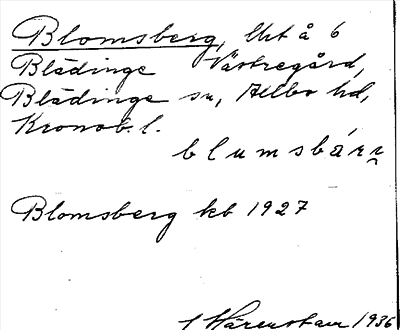 Blomsberg, lht å 6
Blädinge Västregård,
Blädinge sn, Allbo hd,
Kronob. l.
blumsbárr
Blomsberg kb 1927
1936